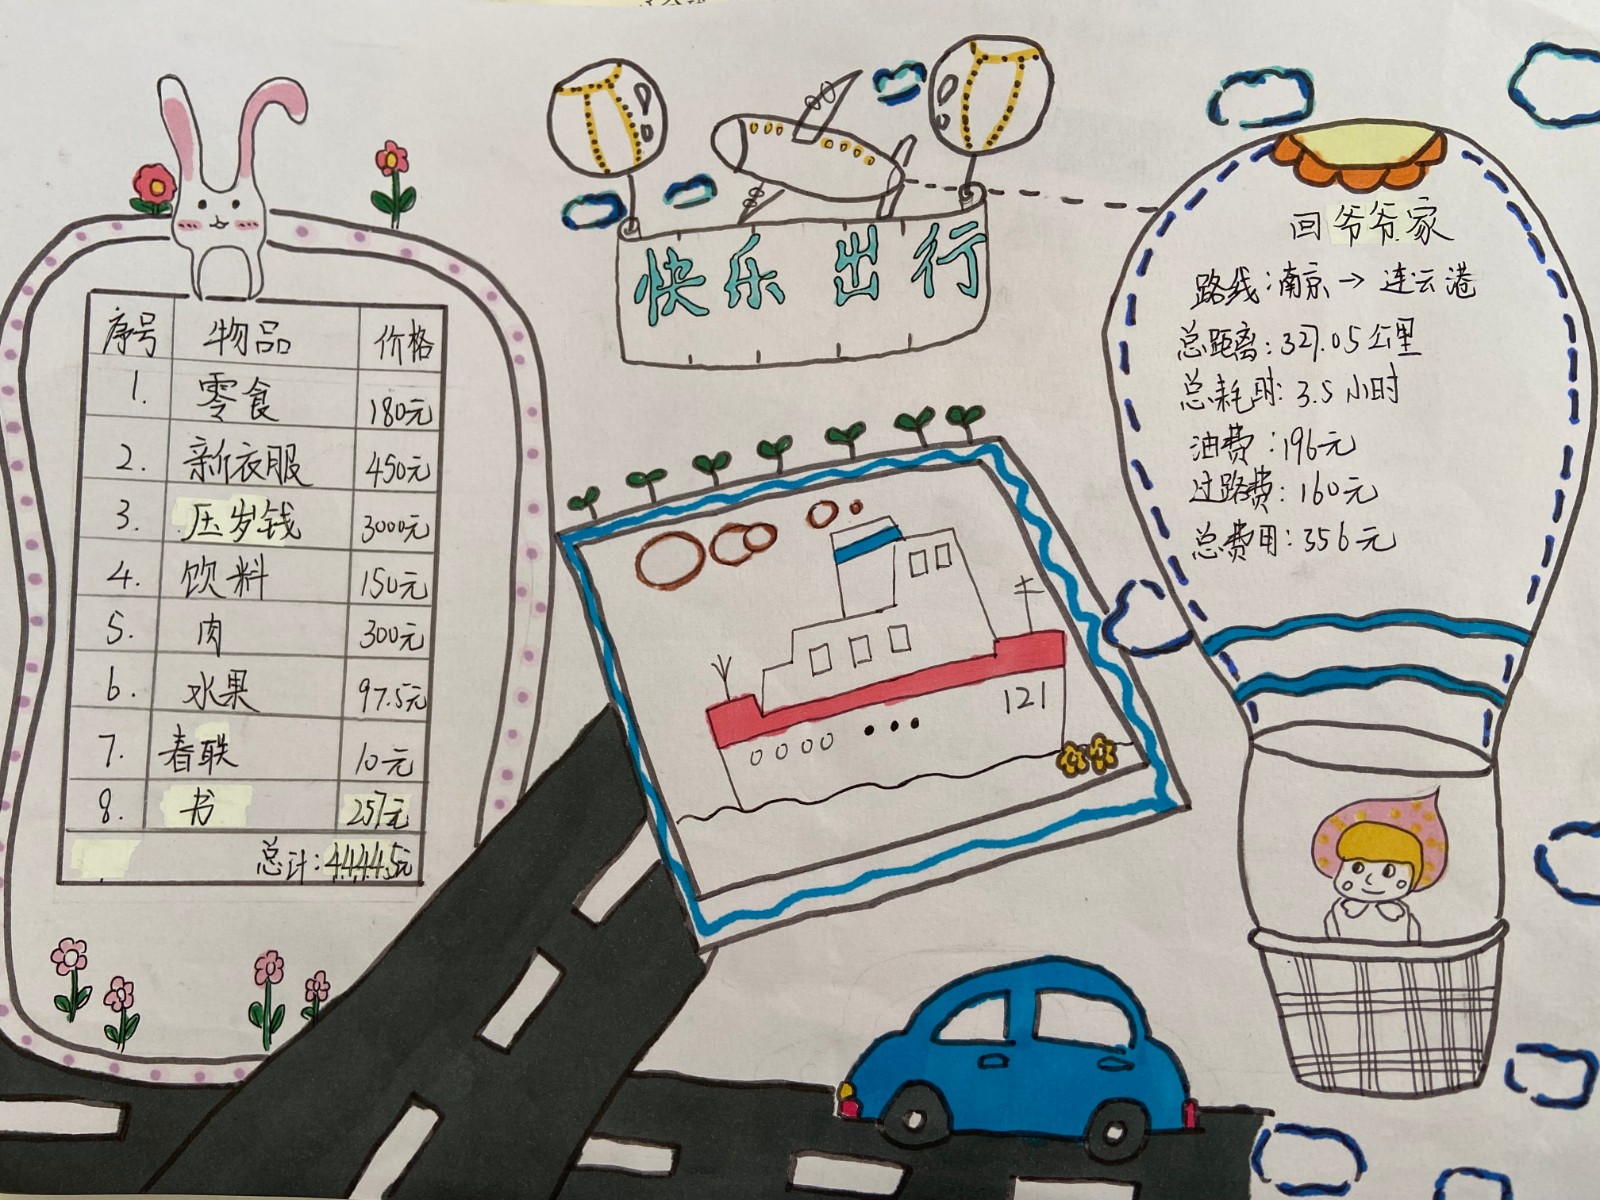 快乐出行
序号 物品 价格
1. 零食 180元
2. 新衣服 450元
3. 压岁钱 3000元
4. 饮料 150元
5. 肉 300元
6. 水果 97.5元
7. 春联 10元
8. 书 257元
总计:4444.5元
121
回爷爷家
路线:南京→连云港
总距离:327.05公里
总耗时:3.5小时
油费:196元
过路费:160元
总费用:356元